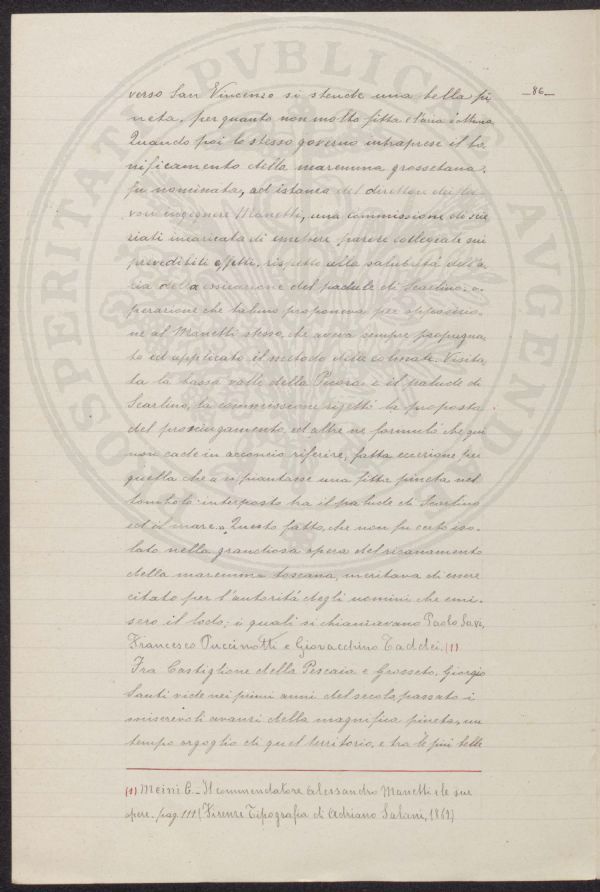 PROSPERITATI PVBLICAE AVGENDAE
-86-
verso San Vincenzo si stende una bella pi
neta, per quanto non molto fitta e l'aria è ottima.
Quando poi lo stesso governo intraprese il bo,
nificamento della maremma grossetana,
fu nominata, ad istanza del direttore dei la-
vori ingegnere Manetti, una commissione di scien
ziati incaricata di emettere parere collegiale sui
prevedibili effetti, rispetto alla salubrità dell'a,
ria della essicazione del padule di Scarlino: o-
perazione che taluno proponeva per opposizio-
ne al Manetti stesso, che aveva sempre propugna,
to ed applicato il metodo delle colmate. Visita,
ta la bassa valle della Pecora e il palude di
Scarlino, la commissione rigettò la proposta
del prosciugamento, ed altre ne formulò che qui
non cade in acconcio riferire, fatta eccezione per
quella che si piantasse una fitta pineta nel
tombolo interposto tra il palude di Scarlino
ed il mare. Questo fatto, che non fu certo iso-
lato nella grandiosa opera del risanamento
della maremma toscana, meritava di essere
citato per l'autorità degli uomini che emi-
sero il lodo; i quali si chiamavano Paolo Savi,
Francesco Puccinotti e Giovacchino Taddei. (1)
Fra Castiglione della Pescaia e Grosseto, Giorgio
Santi vide nei primi anni del secolo passato i
miserevoli avanzi della magnifica pineta, un
tempo orgoglio di quel territorio, e tra le più belle
(1) Meini G - Il commendatore Alessandro Manetti e le sue
opere - pag. 111 (Firenze Tipografia di Adriano Salani, 1867)